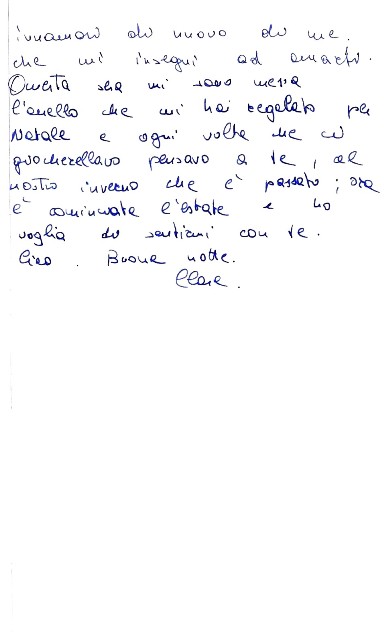 innamori di nuovo di me.
che mi insegni ad amarti.
Questa sera mi sono messa
l'anello che mi hai regalato per
Natale e ogni volta che ci
giocherellavo pensavo a te, al
nostro inverno che è passato; ora
è cominciata l'estate e ho
voglia di sentirmi con te.
Ciao. Buona notte.
Clara.